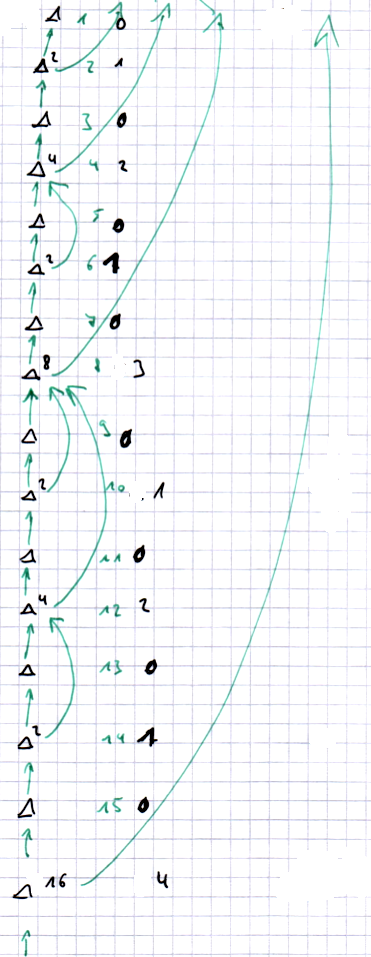 1 0
2 2 1
3 0
4 4 2
5 0
2 6 1
7 0
8 8 3
9 0
2 10 1
11 0
4 12 2
13 0
2 14 1
15 0
16 4